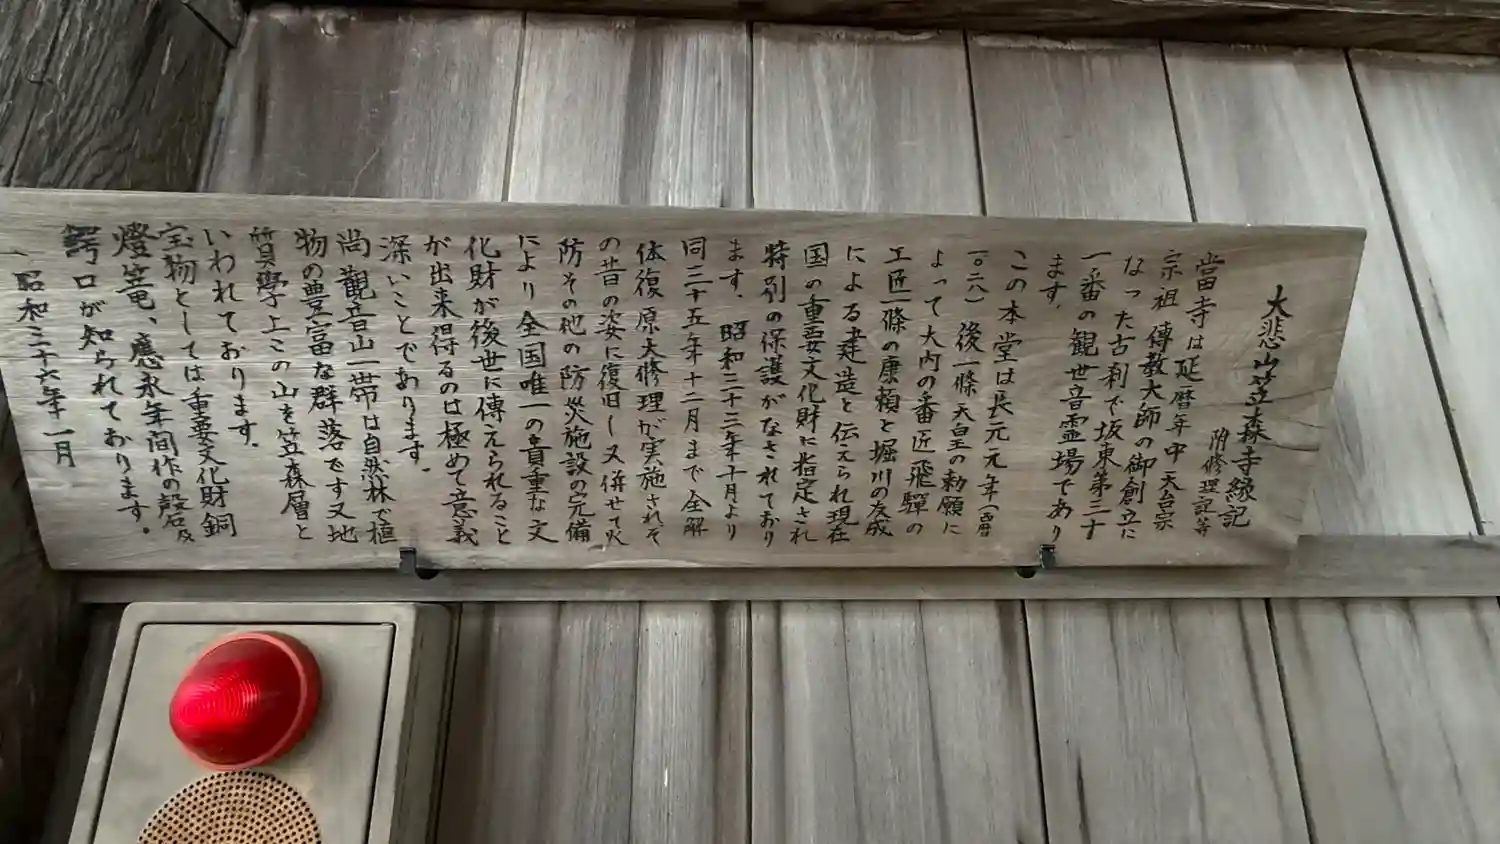 大悲山笠森寺縁記
附修理記等
當寺は延暦年中天台宗
宗祖傳教大師の御創立に
なった古刹で坂東第三十
一番の観世音霊場であり
ます。
この本堂は長元元年（西暦
一〇二八）後一條天皇の勅願に
よって大内の番匠飛騨の
工匠一條の康頼と堀川の友成
による建造と伝えられ現在
国の重要文化財に指定され
特別の保護がなされており
ます。昭和三十三年十月より
同三十五年十二月まで全解
体復原大修理が実施されそ
の昔の姿に復旧し又併せて火
防その他の防災施設の完備
により全国唯一の貴重な文
化財が後世に傳えられること
が出来得るのは極めて意義
深いことであります。
尚観音山一帯は自然林で植
物の豊富な群落です又地
質學上この山を笠森層と
いわれております。
宝物としては重要文化財銅
燈篭、應永年間作の磬及
鰐口が知られております。
昭和三十六年一月